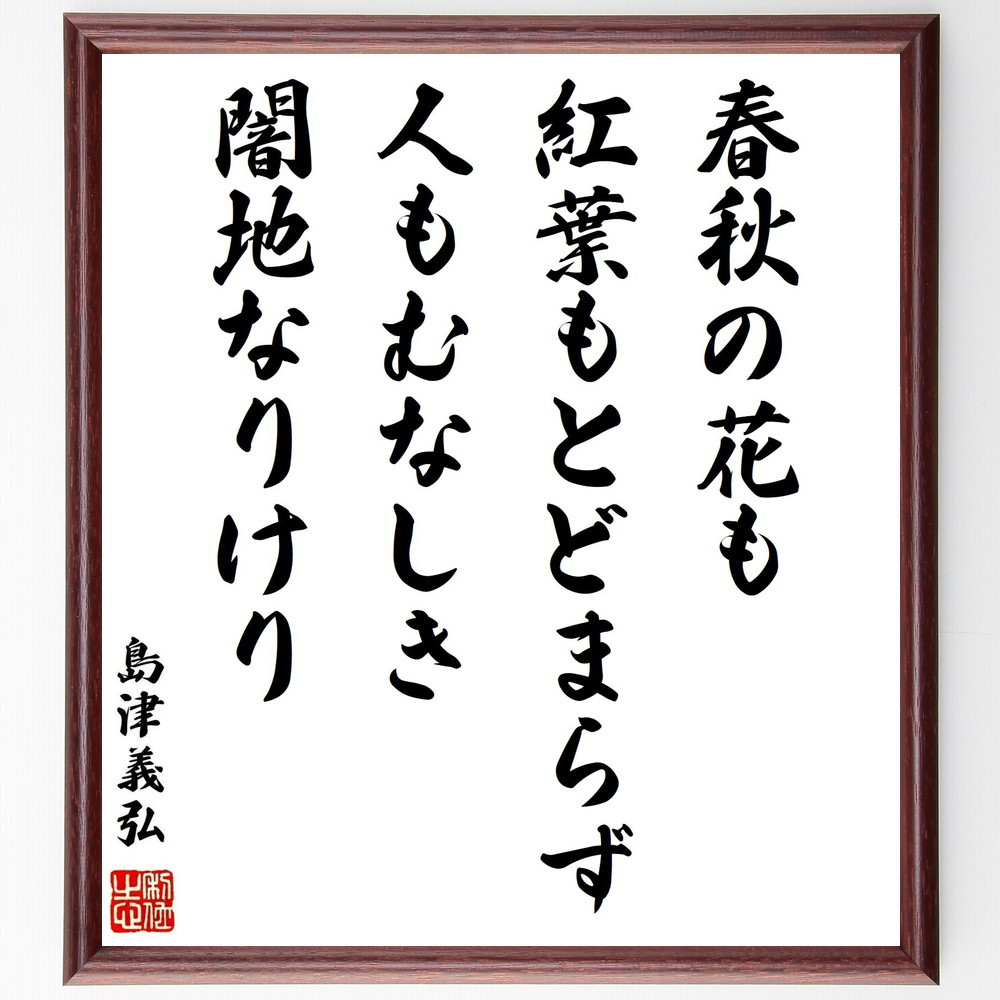 春秋の花も
紅葉もとどまらず
人もむなしき
闇地なりけり
島津義弘